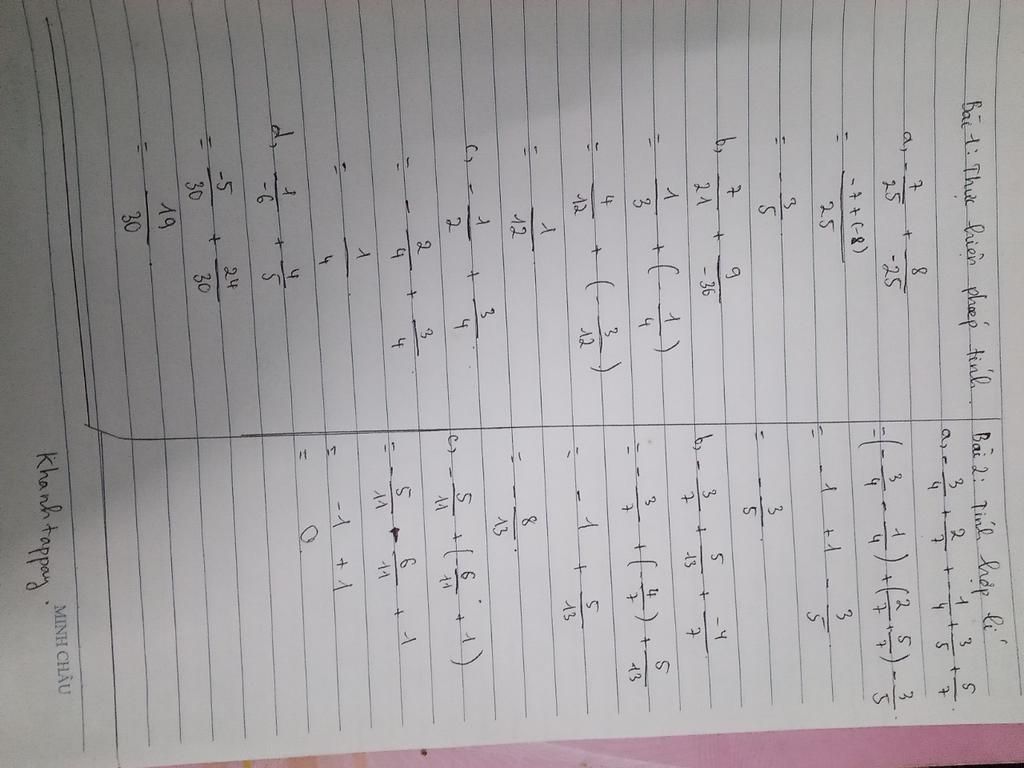 Bài 1: Thực hiện phép tính.
a, -7/25 + 8/-25
= -7+(-8)/25
= -3/5
b, 7/21 + 9/-36
= 1/3 + (-1/4)
= 4/12 + (-3/12)
= 1/12
c, -1/2 + 3/4
= -2/4 + 3/4
= 1/4
d, 1/-6 + 4/5
= -5/30 + 24/30
= 19/30
Bài 2: Tính hợp lí
a, -3/4 + 2/7 + -1/4 + 3/5 + 5/7
= (-3/4 - 1/4) + (2/7 + 5/7) - 3/5.
= -1 + 1 - 3/5
= -3/5
b, -3/7 + 5/13 + -4/7
= -3/7 + (-4/7) + 5/13
= -1 + 5/13
= -8/13.
c, -5/11 + (-6/11 + 1)
= -5/11 - 6/11 + 1
= -1 + 1
= 0
Khanh tappay.
MINH CHÂU